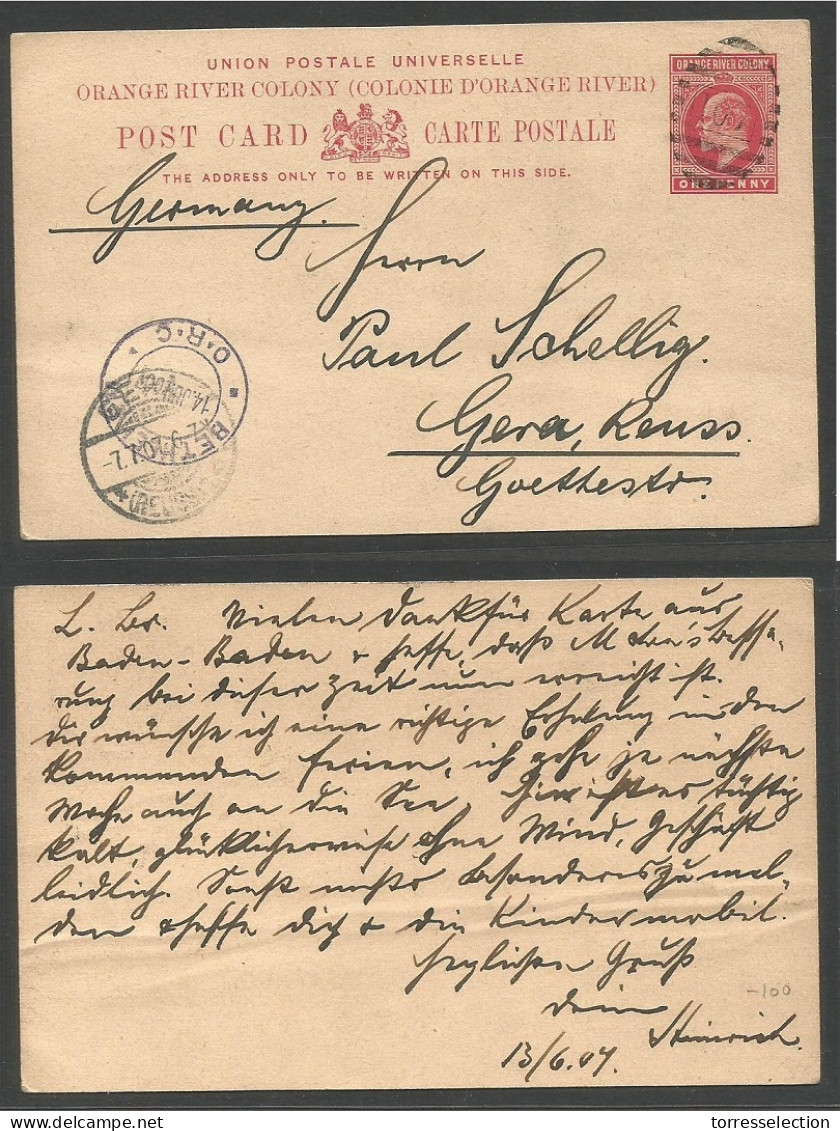 UNION POSTALE UNIVERSELLE
ORANGE RIVER COLONY (COLONIE D'ORANGE RIVER)
POST CARD CARTE POSTALE
THE ADDRESS ONLY TO BE WRITTEN ON THIS SIDE.
ORANGE RIVER COLONY
ONE PENNY
Germany.
Herrn
Paul Schellig.
Gera, Reuss.
Goethestr.
O.R.C
(REUSS)
L. Br. Vielen Dank für Karte aus
Baden-Baden + hoffe, daß
rung bei dieser Zeit nun erreicht ist.
Dir wünsche ich eine richtige Erholung in den
kommenden Ferien, ich gehe je nächste
Woche auch an die See. Hier ist es tüchtig
kalt, glücklicherweise ohne Wind, Geschäft
leidlich. Sonst nichts Besonderes zu mel-
den + hoffe dich + die Kinder mobil.
herzlichen Gruß
Dein
Heinrich.
13/6.07.
-100
www.delcampe.net
torresselection